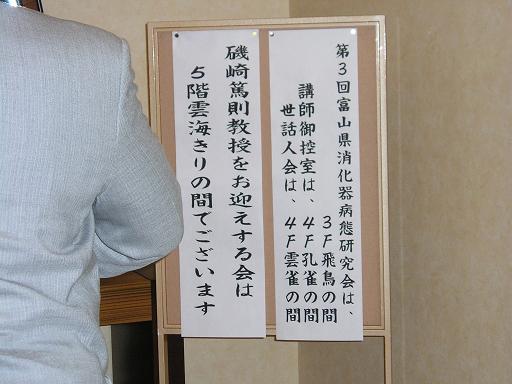 第3回富山県消化器病態研究会は、
3F飛鳥の間
講師御控室は、4F孔雀の間
世話人会は、4F雲雀の間
磯崎篤則教授をお迎えする会は
5階雲海きりの間でございます